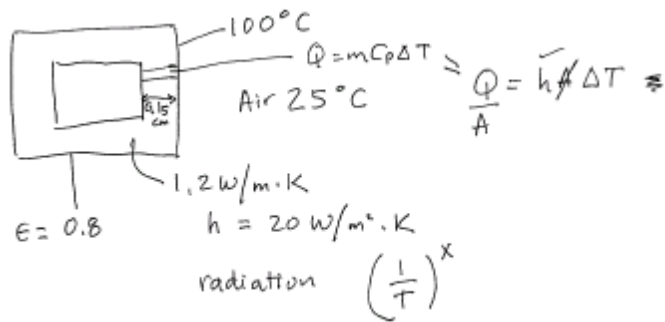 100°C
Q = mCpΔT
Q/A = hA ΔT =
Air 25°C
0,15
cm
1.2 W/m·K
ϵ = 0.8
h = 20 W/m²·K
radiation (1/T)^x